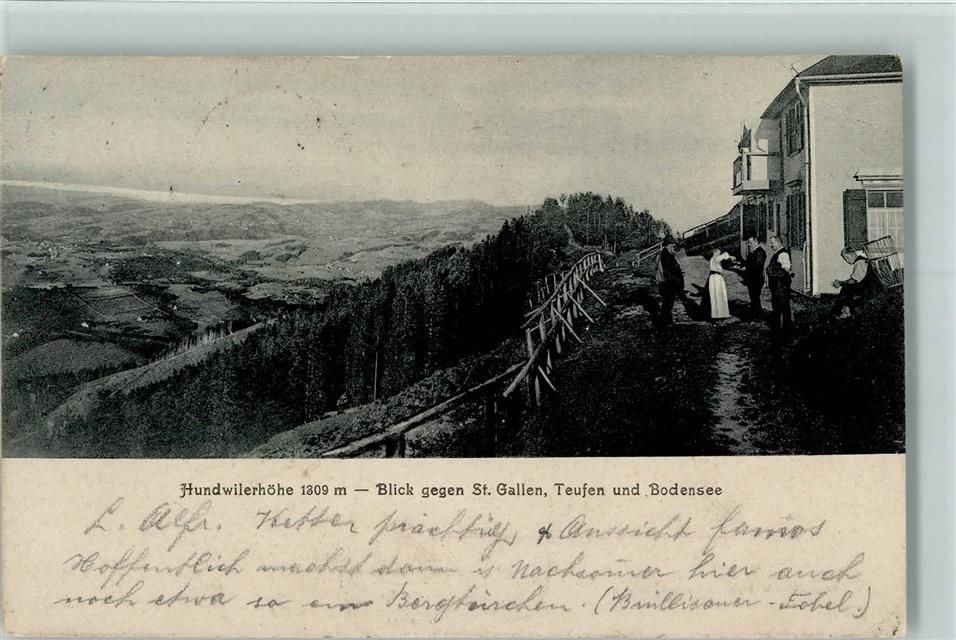 Hundwilerhöhe 1309 m — Blick gegen St. Gallen, Teufen und Bodensee
L. Alfr. Wetter prächtig & Aussicht famos
Hoffentlich machst dann i. Nachsom̅er hier auch
noch etwa so ein Bergtürchen. (Brüllisauer-Tobel.)